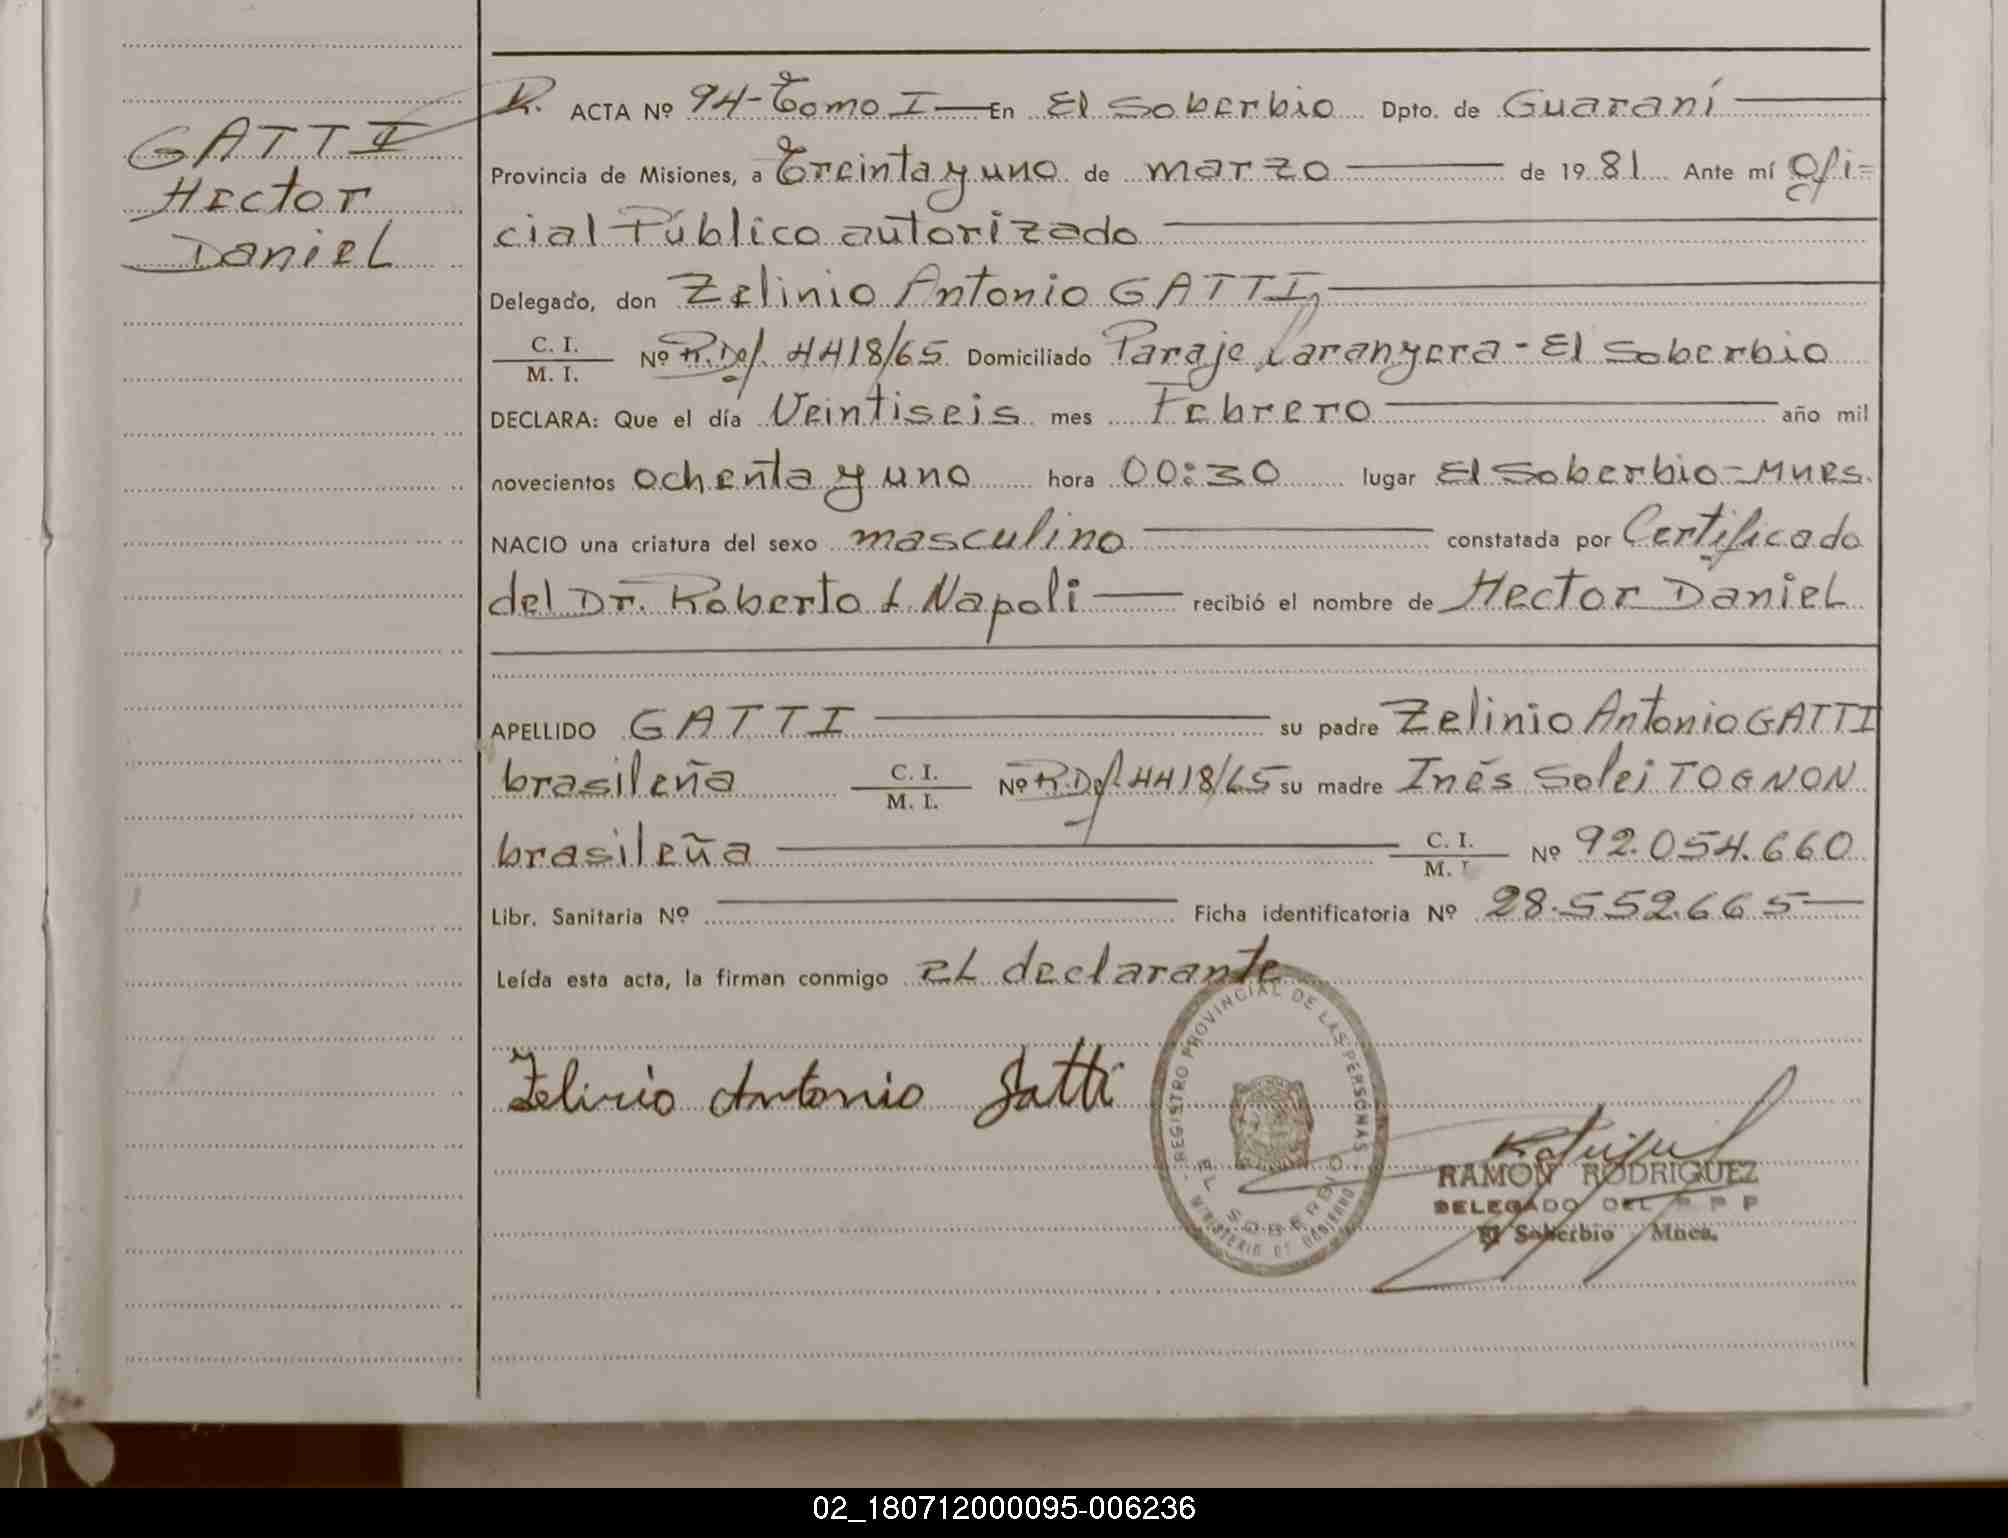 GATTI
Hector
Daniel
R. ACTA Nº 94- Tomo I — En El Soberbio Dpto. de Guaraní —
Provincia de Misiones, a Treinta y uno de marzo — de 1981 Ante mí Ofi-
cial Público autorizado —
Delegado, don Zelinio Antonio GATTI, —
C. I.
M. I. Nº R. Def. 4418/65 Domiciliado Paraje Laranyera - El Soberbio
DECLARA: Que el día Veintiseis mes Febrero — año mil
novecientos ochenta y uno hora 00:30 lugar El Soberbio-Mnes.
NACIO una criatura del sexo masculino — constatada por Certificado
del Dr. Roberto L Napoli — recibió el nombre de Hector Daniel
APELLIDO GATTI — su padre Zelinio Antonio GATTI
brasileña C. I.
M. I. Nº R. Def. 4418/65 su madre Inés Solei TOGNON
brasileña — C. I.
M. I Nº 92.054.660
Libr. Sanitaria Nº — Ficha identificatoria Nº 28.552.665 —
Leída esta acta, la firman conmigo el declarante
Zelinio Antonio Gatti
REGISTRO PROVINCIAL DE LAS PERSONAS
EL SOBERBIO
MINISTERIO DE GOBIERNO
RAMON RODRIGUEZ
DELEGADO DEL R P P
El Soberbio Mnes.
02_180712000095-006236